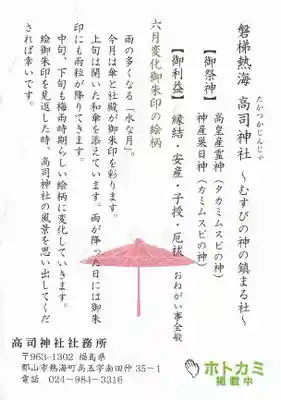 磐梯熱海 高司神社 ～むすびの神の鎮まる社～
たかつかじんじゃ
【御祭神】 高皇産霊神（タカミムスビの神）
神産巣日神（カミムスビの神）
【御利益】 縁結・安産・子授・厄祓 おねがい事全般
六月変化御朱印の絵柄
雨の多くなる「水な月」。
今月は傘と社殿が御朱印を彩ります。
上旬は開いた和傘を添えています。雨が降った日には御朱
印にも雨粒が降りてきます。
中旬、下旬も梅雨時期らしい絵柄に変化していきます。
絵御朱印を見返した時、高司神社の風景を思い出してくだ
されば幸いです。
高司神社社務所
〒963-1302 福島県
郡山市熱海町高玉字南田仲35-1
電話 024-984-3316
ホトカミ
掲載中